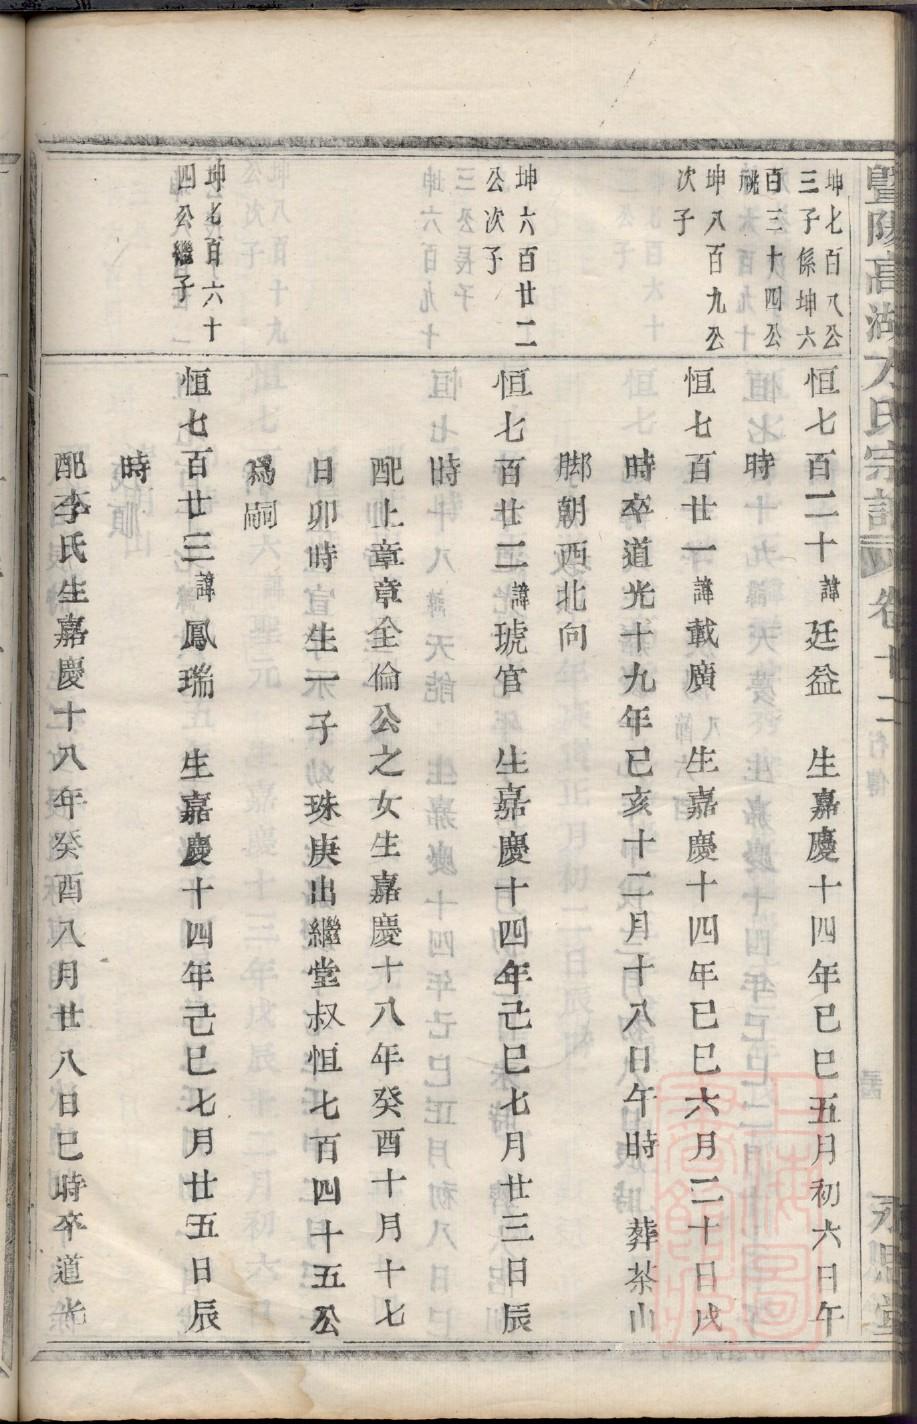 暨陽高湖方氏宗譜 卷十二 行傳 永思堂
坤七百八公
三子係坤六
百三十四公
祧
恒七百二十 諱 廷益 生嘉慶十四年己巳五月初六日午
時
坤八百九公
次子
恒七百廿一 諱 載廣 生嘉慶十四年己巳六月二十日戌
時卒道光十九年己亥十二月十八日午時 葬茶山
脚朝西北向
坤六百廿二
公次子
恒七百廿二 諱 琥官 生嘉慶十四年己巳七月廿三日辰
時
配上章章全倫公之女生嘉慶十八年癸酉十月十七
日卯時宣生一子珠庚出繼堂叔恒七百四十五公
爲嗣
坤七百六十
四公繼子
恒七百廿三 諱 鳳瑞 生嘉慶十四年己巳七月廿五日辰
時
配李氏生嘉慶十八年癸酉八月廿八日巳時卒道光